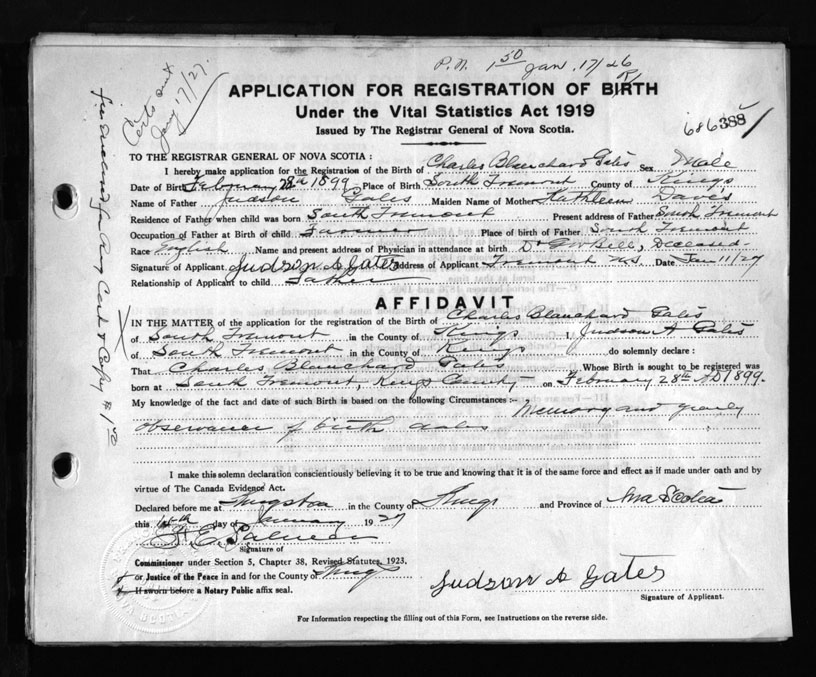 P.N. 1 50 Jan. 17/26
Certs sent
Jany 17/27.
APPLICATION FOR REGISTRATION OF BIRTH
Under the Vital Statistics Act 1919
Issued by The Registrar General of Nova Scotia.
686388
TO THE REGISTRAR GENERAL OF NOVA SCOTIA :
I hereby make application for the Registration of the Birth of Charles Blanchard Gates Sex Male
Date of Birth February 28th 1899 Place of Birth South Tremont County of Kings
Name of Father Judson Gates Maiden Name of Mother Kathleen Davis
Residence of Father when child was born South Tremont Present address of Father South Tremont
Occupation of Father at Birth of child Farmer Place of birth of Father South Tremont
Race English Name and present address of Physician in attendance at birth Dr Deceased
Signature of Applicant Judson A Gates Address of Applicant Tremont N.S. Date Jan 11/27
Relationship of Applicant to child Father
AFFIDAVIT
IN THE MATTER of the application for the registration of the Birth of Charles Blanchard Gates
of South Tremont in the County of Kings I, Judson A Gates
of South Tremont in the County of Kings do solemnly declare :
That Charles Blanchard Gates Whose Birth is sought to be registered was
born at South Tremont, Kings County on February 28th AD 1899.
My knowledge of the fact and date of such Birth is based on the following Circumstances :- Memory and yearly
observance of birth dates
I make this solemn declaration conscientiously believing it to be true and knowing that it is of the same force and effect as if made under oath and by
virtue of The Canada Evidence Act.
Declared before me at Kingston in the County of Kings and Province of Nova Scotia
this day of January 1927
Signature of
Commissioner under Section 5, Chapter 38, Revised Statutes, 1923,
or Justice of the Peace in and for the County of Kings
If sworn before a Notary Public affix seal.
Judson A Gates
Signature of Applicant.
For Information respecting the filling out of this Form, see Instructions on the reverse side.